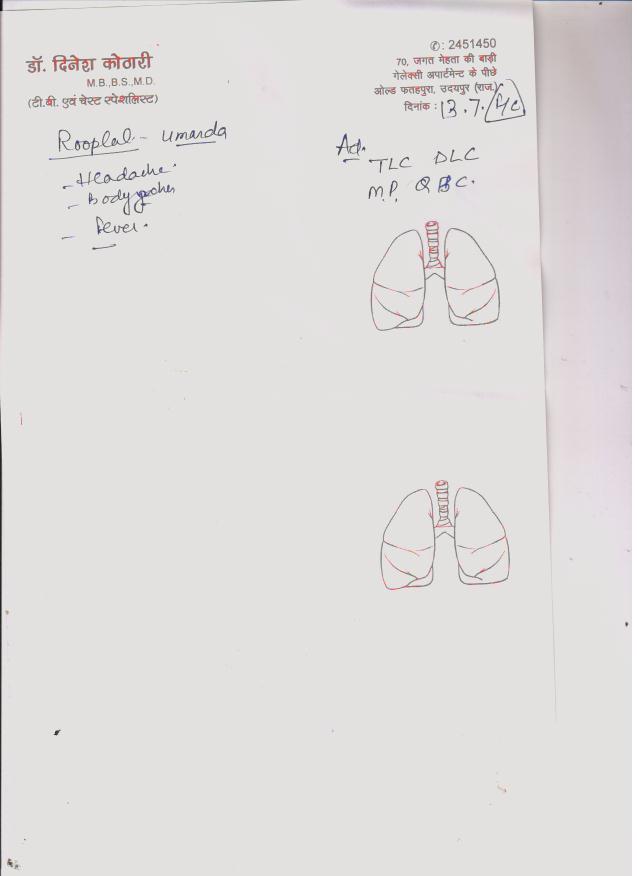 डॉ. दिनेश कोठारी
M.B.,B.S.,M.D.
(टी.बी. एवं चेस्ट स्पेशलिस्ट)
✆: 2451450
70, जगत मेहता की बाड़ी
गेलेक्सी अपार्टमेन्ट के पीछे
ओल्ड फतहपुरा, उदयपुर (राज.)
दिनांक : 13.7.
Rooplal - Umarda
- Headache.
- Body aches
- Fever.
Ad.
TLC DLC
M.P. QBC.